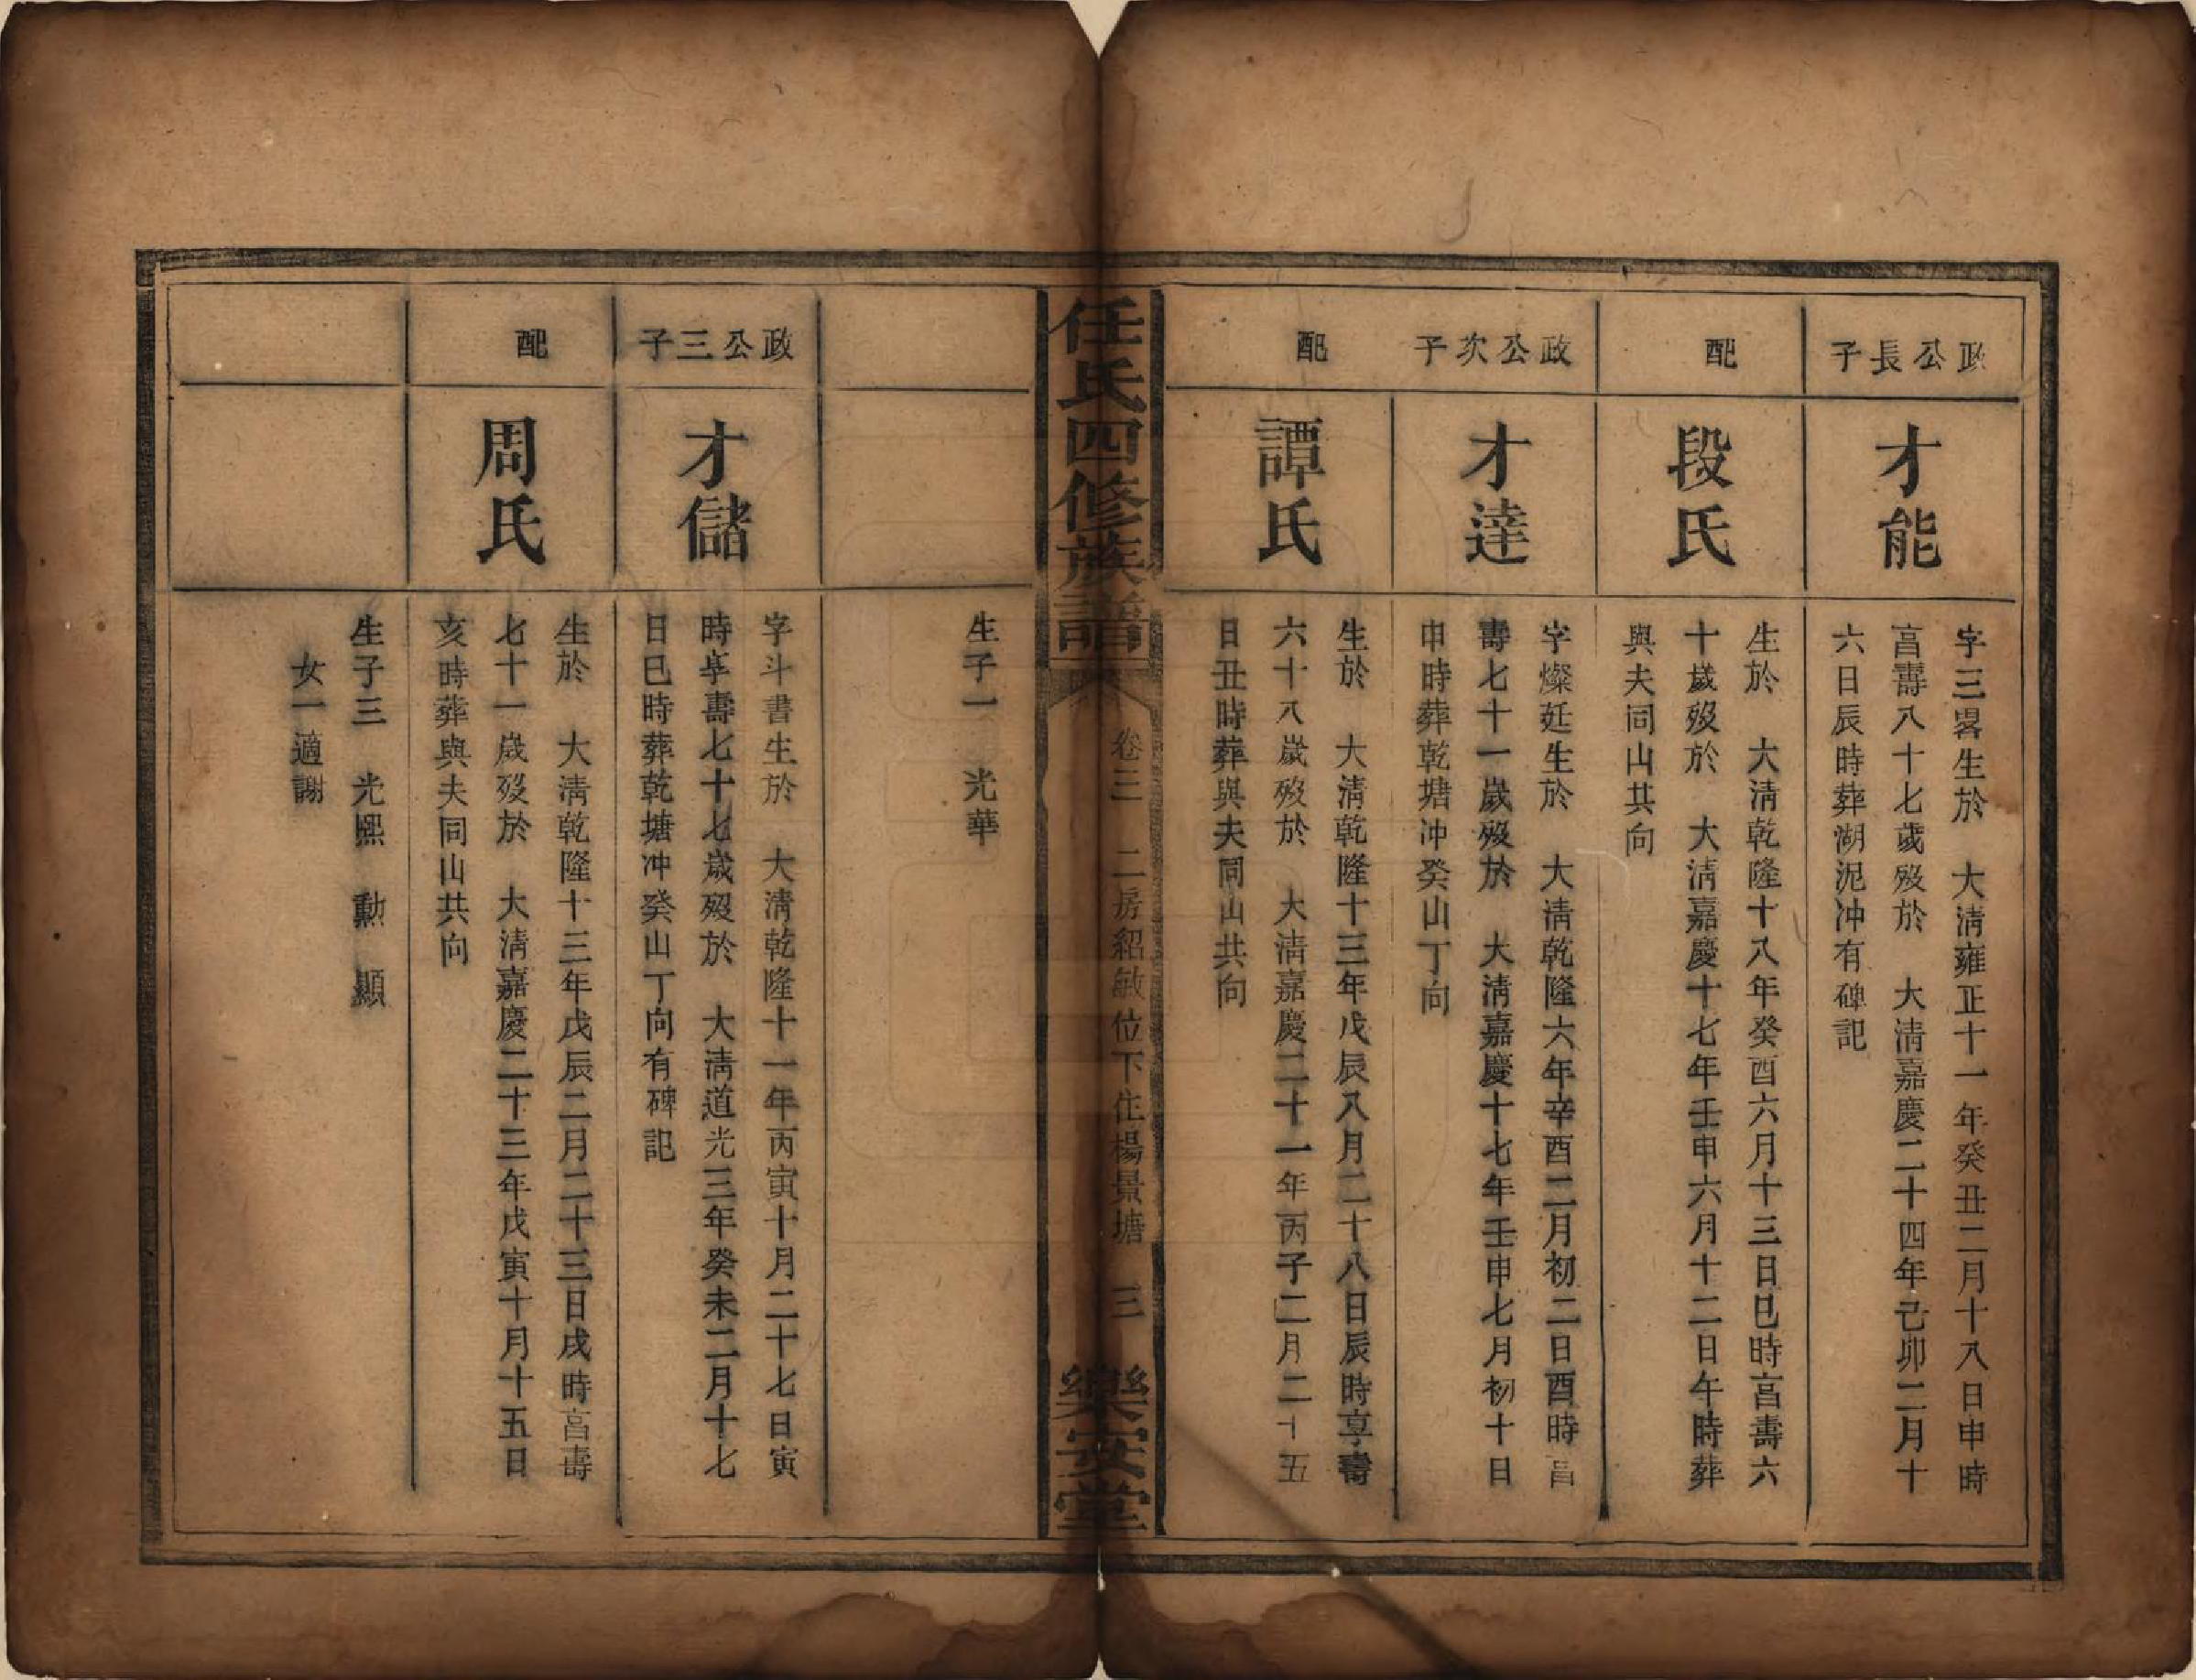 政公長子
才能
字三畧生於　大清雍正十一年癸丑二月十八日申時
亯壽八十七歲歿於　大清嘉慶二十四年己卯二月十
六日辰時葬湖泥冲有碑記
配
段氏
生於　大清乾隆十八年癸酉六月十三日巳時亯壽六
十歲歿於　大清嘉慶十七年壬申六月十二日午時葬
與夫同山共向
政公次子
才達
字燦廷生於　大清乾隆六年辛酉二月初二日酉時亯
壽七十一歲歿於　大清嘉慶十七年壬申七月初十日
申時葬乾塘冲癸山丁向
配
譚氏
生於　大清乾隆十三年戊辰八月二十八日辰時享壽
六十八歲歿於　大清嘉慶二十一年丙子二月二十五
日丑時葬與夫同山共向
任氏四修族譜
卷三　二房紹敏位下住楊景塘　三
樂安堂
生子一　光華
政公三子
才儲
字斗書生於　大清乾隆十一年丙寅十月二十七日寅
時享壽七十七歲歿於　大清道光三年癸未二月十七
日巳時葬乾塘冲癸山丁向有碑記
配
周氏
生於　大清乾隆十三年戊辰二月二十三日戌時亯壽
七十一歲歿於　大清嘉慶二十三年戊寅十月十五日
亥時葬與夫同山共向
生子三　光熙　勳　顯
女一適謝